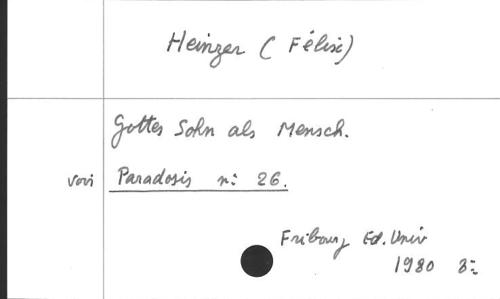 Heinzer (Félix)
Gottes Sohn als Mensch.
voir Paradosis n: 26.
Fribourg Ed. Univ
1980 8: